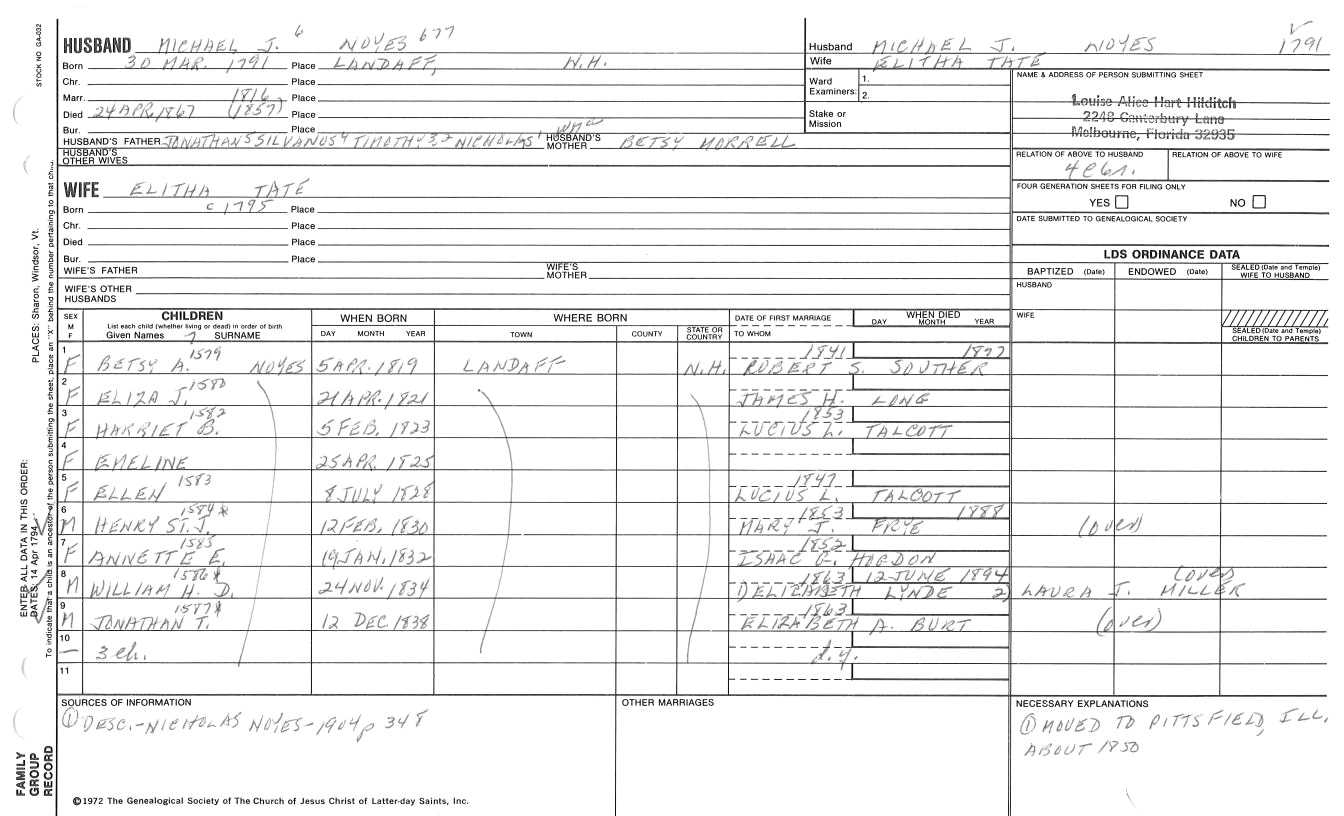 STOCK NO GA-032
HUSBAND MICHAEL J. 6 NOYES 677
Born 30 MAR. 1791 Place LANDAFF, N.H.
Chr. Place
Marr. 1816 Place
Died 24 APR, 1867 (1857) Place
Bur. Place
HUSBAND'S FATHER JONATHAN 5 SILVANUS 4 TIMOTHY 3,2 NICHOLAS 1 HUSBAND'S MOTHER BETSY MORRELL
HUSBAND'S OTHER WIVES
Husband MICHAEL J. NOYES 1791
Wife ELITHA TATE
Ward Examiners: 1.
2.
Stake or Mission
NAME & ADDRESS OF PERSON SUBMITTING SHEET
Louise Alice Hart Hilditch
2248 Canterbury Lane
Melbourne, Florida 32935
RELATION OF ABOVE TO HUSBAND RELATION OF ABOVE TO WIFE
FOUR GENERATION SHEETS FOR FILING ONLY
YES NO
DATE SUBMITTED TO GENEALOGICAL SOCIETY
WIFE ELITHA TATE
Born c 1795 Place
Chr. Place
Died Place
Bur. Place
WIFE'S FATHER WIFE'S MOTHER
WIFE'S OTHER HUSBANDS
LDS ORDINANCE DATA
BAPTIZED (Date) ENDOWED (Date) SEALED (Date and Temple) WIFE TO HUSBAND
HUSBAND
WIFE
SEALED (Date and Temple) CHILDREN TO PARENTS
SEX M F CHILDREN WHEN BORN WHERE BORN DATE OF FIRST MARRIAGE WHEN DIED
List each child (whether living or dead) in order of birth
Given Names 7 SURNAME DAY MONTH YEAR TOWN COUNTY STATE OR COUNTRY TO WHOM DAY MONTH YEAR
1 1579 1841 1877
F BETSY A. NOYES 5 APR. 1819 LANDAFF N.H. ROBERT S. SOUTHER
2 1580
F ELIZA J. 21 APR. 1821 JAMES H. LONG
3 1582 1853
F HARRIET B. 5 FEB. 1823 LUCIUS L. TALCOTT
4
F EMELINE 25 APR. 1825
5 1583 1847
F ELLEN 8 JULY 1828 LUCIUS L. TALCOTT
6 1584* 1853 1888
M HENRY ST. J. 12 FEB. 1830 MARY J. FRYE (over)
7 1585 1852
F ANNETTE E. 19 JAN. 1832 ISAAC G. HODGDON
8 1586* 1863 12 JUNE 1894 (over)
M WILLIAM H. D. 24 NOV. 1834 DELIZABETH LYNDE 2) LAURA J. MILLER
9 1587* 1863
M JONATHAN T. 12 DEC 1838 ELIZABETH A. BURT (over)
10
— 3 ch. d.y.
11
SOURCES OF INFORMATION
① DESC.-NICHOLAS NOYES-1904 p 348
OTHER MARRIAGES
NECESSARY EXPLANATIONS
① MOVED TO PITTSFIELD, ILL.
ABOUT 1850
©1972 The Genealogical Society of The Church of Jesus Christ of Latter-day Saints, Inc.
FAMILY
GROUP
RECORD
ENTER ALL DATA IN THIS ORDER:
DATES: 14 Apr 1794
PLACES: Sharon, Windsor, Vt.
To indicate that a child is an ancestor of the person submitting the sheet, place an "X" behind the number pertaining to that